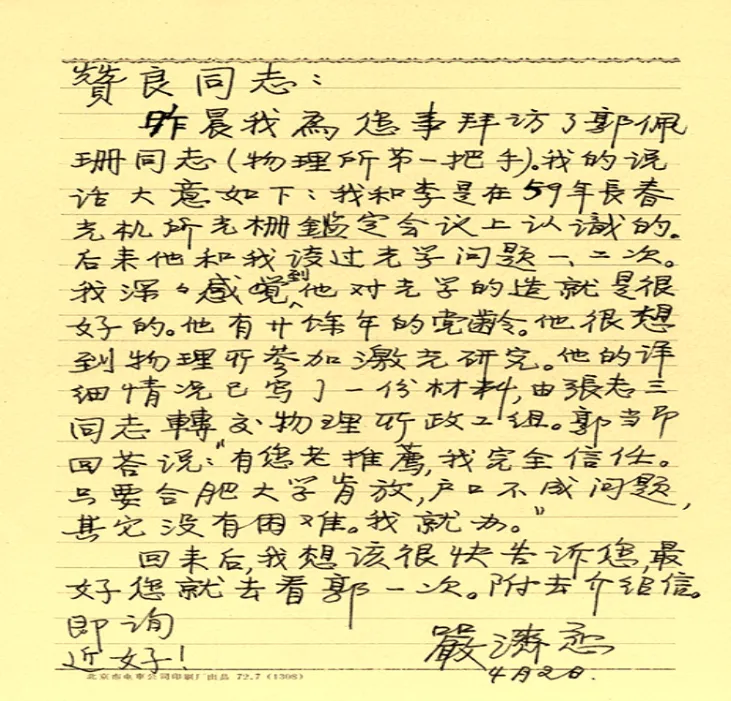 贊良同志：
昨晨我為您事拜访了郭佩
珊同志(物理所第一把手)。我的说
话大意如下：我和李是在59年長春
光机所光栅鑑定会议上认識的.
后来他和我谈过光学问题一、二次。
我深々感覺到他对光学的造就是很
好的。他有廿馀年的党齡。他很想
到物理所參加激光研究。他的详
细情况已写了一份材料,由張志三
同志轉交物理所政工组。郭当即
回答说:"有您老推薦,我完全信任。
只要合肥大学肯放,户口不成问题,
其它没有困难。我就办。"
回来后,我想该很快告诉您,最
好您就去看郭一次。附去介绍信。
即询
近好!
嚴濟慈
4月2日.
北京市电車公司印刷厂出品 72.7 (1308)